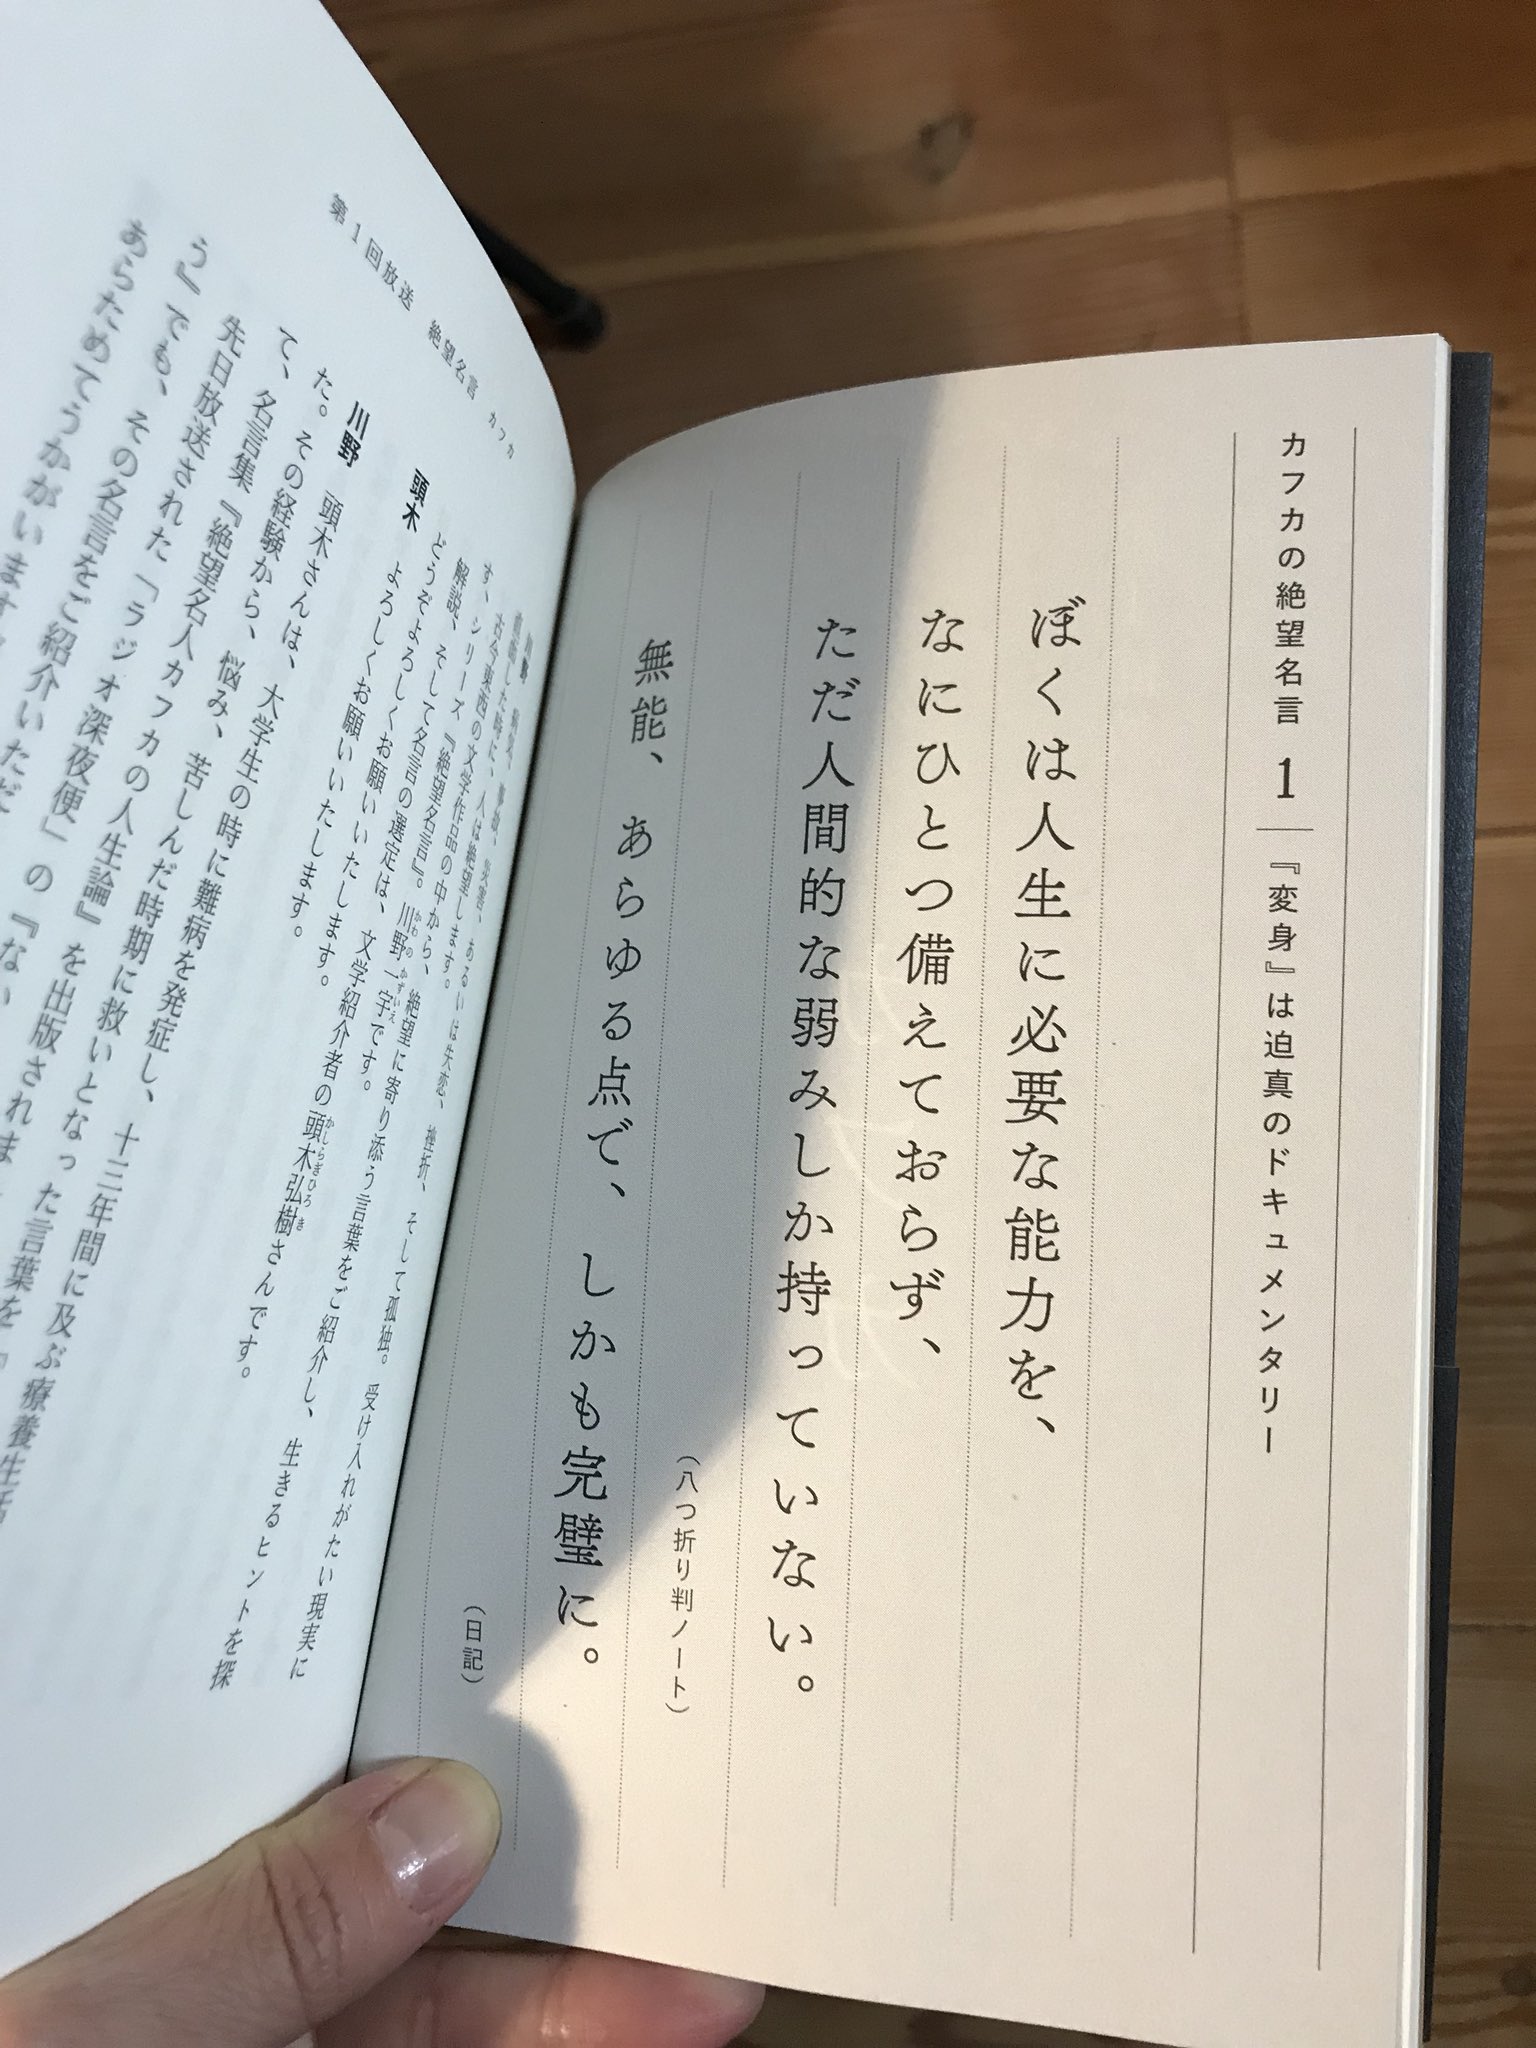 カフカの絶望名言 1 『変身』は迫真のドキュメンタリー
ぼくは人生に必要な能力を、
なにひとつ備えておらず、
ただ人間的な弱みしか持っていない。
(八つ折り判ノート)
無能、あらゆる点で、しかも完璧に。
(日記)
第1回放送 絶望名言 カフカ
川野 病気、事故、災害、あるいは失恋、挫折、そして孤独。受け入れがたい現実に
直面した時に、人は絶望します。
古今東西の文学作品の中から、絶望に寄り添う言葉をご紹介し、生きるヒントを探
かわの かずいえ
す、シリーズ『絶望名言』。川野一宇です。
かしらぎひろき
解説、そして名言の選定は、文学紹介者の頭木弘樹さんです。
どうぞよろしくお願いいたします。
頭木 よろしくお願いいたします。
川野 頭木さんは、大学生の時に難病を発症し、十三年間に及ぶ療養生活
た。その経験から、悩み、苦しんだ時期に救いとなった言葉を『
て、名言集『絶望名人カフカの人生論』を出版されま
先日放送された「ラジオ深夜便」の『ない
う』でも、その名言をご紹介いただ
あらためてうかがいます